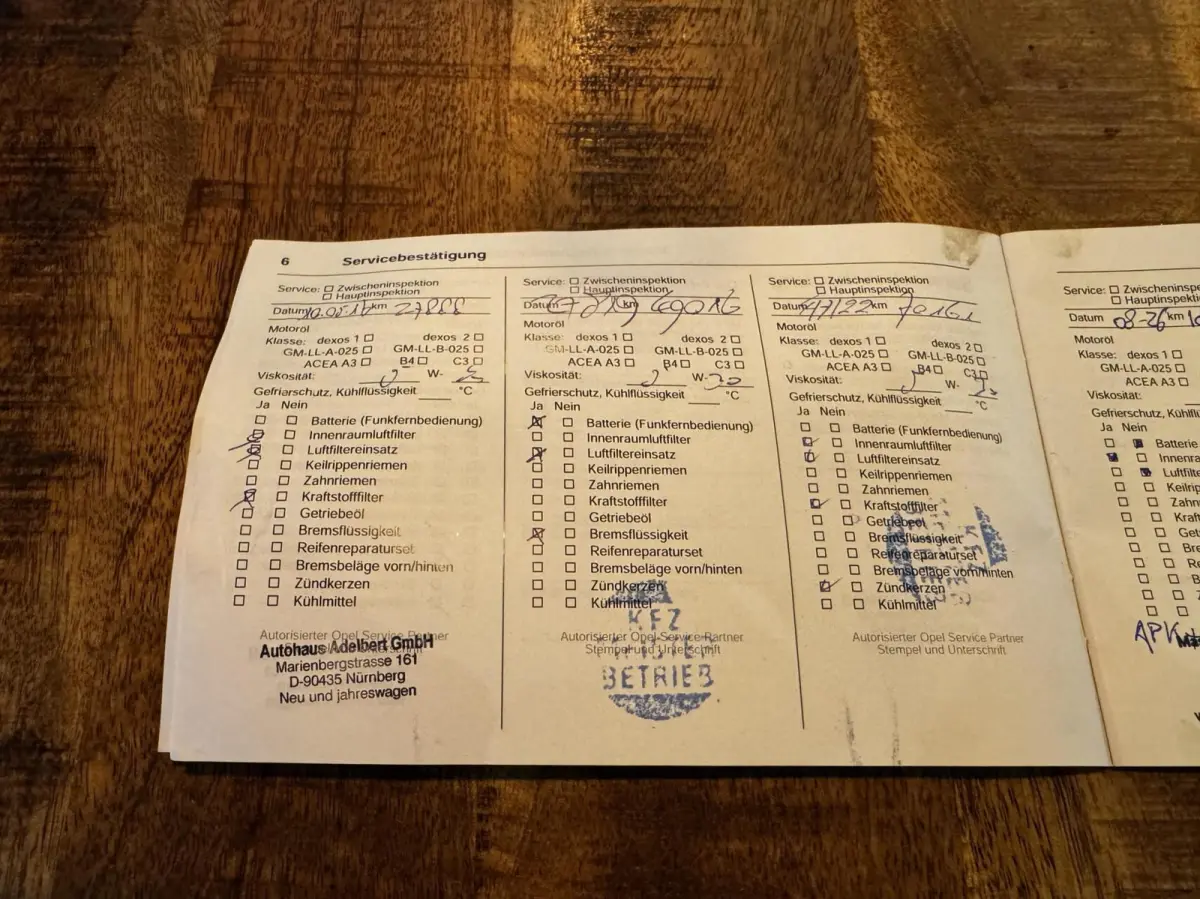 6 Servicebestätigung
Service: Zwischeninspektion
Hauptinspektion
Datum km
Motoröl
Klasse: dexos 1 dexos 2
GM-LL-A-025 GM-LL-B-025
ACEA A3 B4 C3
Viskosität: W-
Gefrierschutz, Kühlflüssigkeit °C
Ja Nein
Batterie (Funkfernbedienung)
Innenraumluftfilter
Luftfiltereinsatz
Keilrippenriemen
Zahnriemen
Kraftstofffilter
Getriebeöl
Bremsflüssigkeit
Reifenreparaturset
Bremsbeläge vorn/hinten
Zündkerzen
Kühlmittel
Autorisierter Opel Service Partner
Autohaus Adelbert GmbH
Marienbergstrasse 161
D-90435 Nürnberg
Neu und jahreswagen
Service: Zwischeninspektion
Hauptinspektion
Datum km
Motoröl
Klasse: dexos 1 dexos 2
GM-LL-A-025 GM-LL-B-025
ACEA A3 B4 C3
Viskosität: W-
Gefrierschutz, Kühlflüssigkeit °C
Ja Nein
Batterie (Funkfernbedienung)
Innenraumluftfilter
Luftfiltereinsatz
Keilrippenriemen
Zahnriemen
Kraftstofffilter
Getriebeöl
Bremsflüssigkeit
Reifenreparaturset
Bremsbeläge vorn/hinten
Zündkerzen
Kühlmittel
Autorisierter Opel Service Partner
Stempel und Unterschrift
KFZ
BETRIEB
Service: Zwischeninspektion
Hauptinspektion
Datum km
Motoröl
Klasse: dexos 1 dexos 2
GM-LL-A-025 GM-LL-B-025
ACEA A3 B4 C3
Viskosität: W-
Gefrierschutz, Kühlflüssigkeit °C
Ja Nein
Batterie (Funkfernbedienung)
Innenraumluftfilter
Luftfiltereinsatz
Keilrippenriemen
Zahnriemen
Kraftstofffilter
Getriebeöl
Bremsflüssigkeit
Reifenreparaturset
Bremsbeläge vorn/hinten
Zündkerzen
Kühlmittel
Autorisierter Opel Service Partner
Stempel und Unterschrift
Service: Zwischeninspe
Hauptinspekti
Datum 08-26 km
Motoröl
Klasse: dexos 1
GM-LL-A-025
ACEA A3
Viskosität:
Gefrierschutz, Kühlflüssi
Ja Nein
Batterie
Innenra
Luftfilte
Keilrip
Zahn
Kraft
Get
Br
Re
B
Z
APK